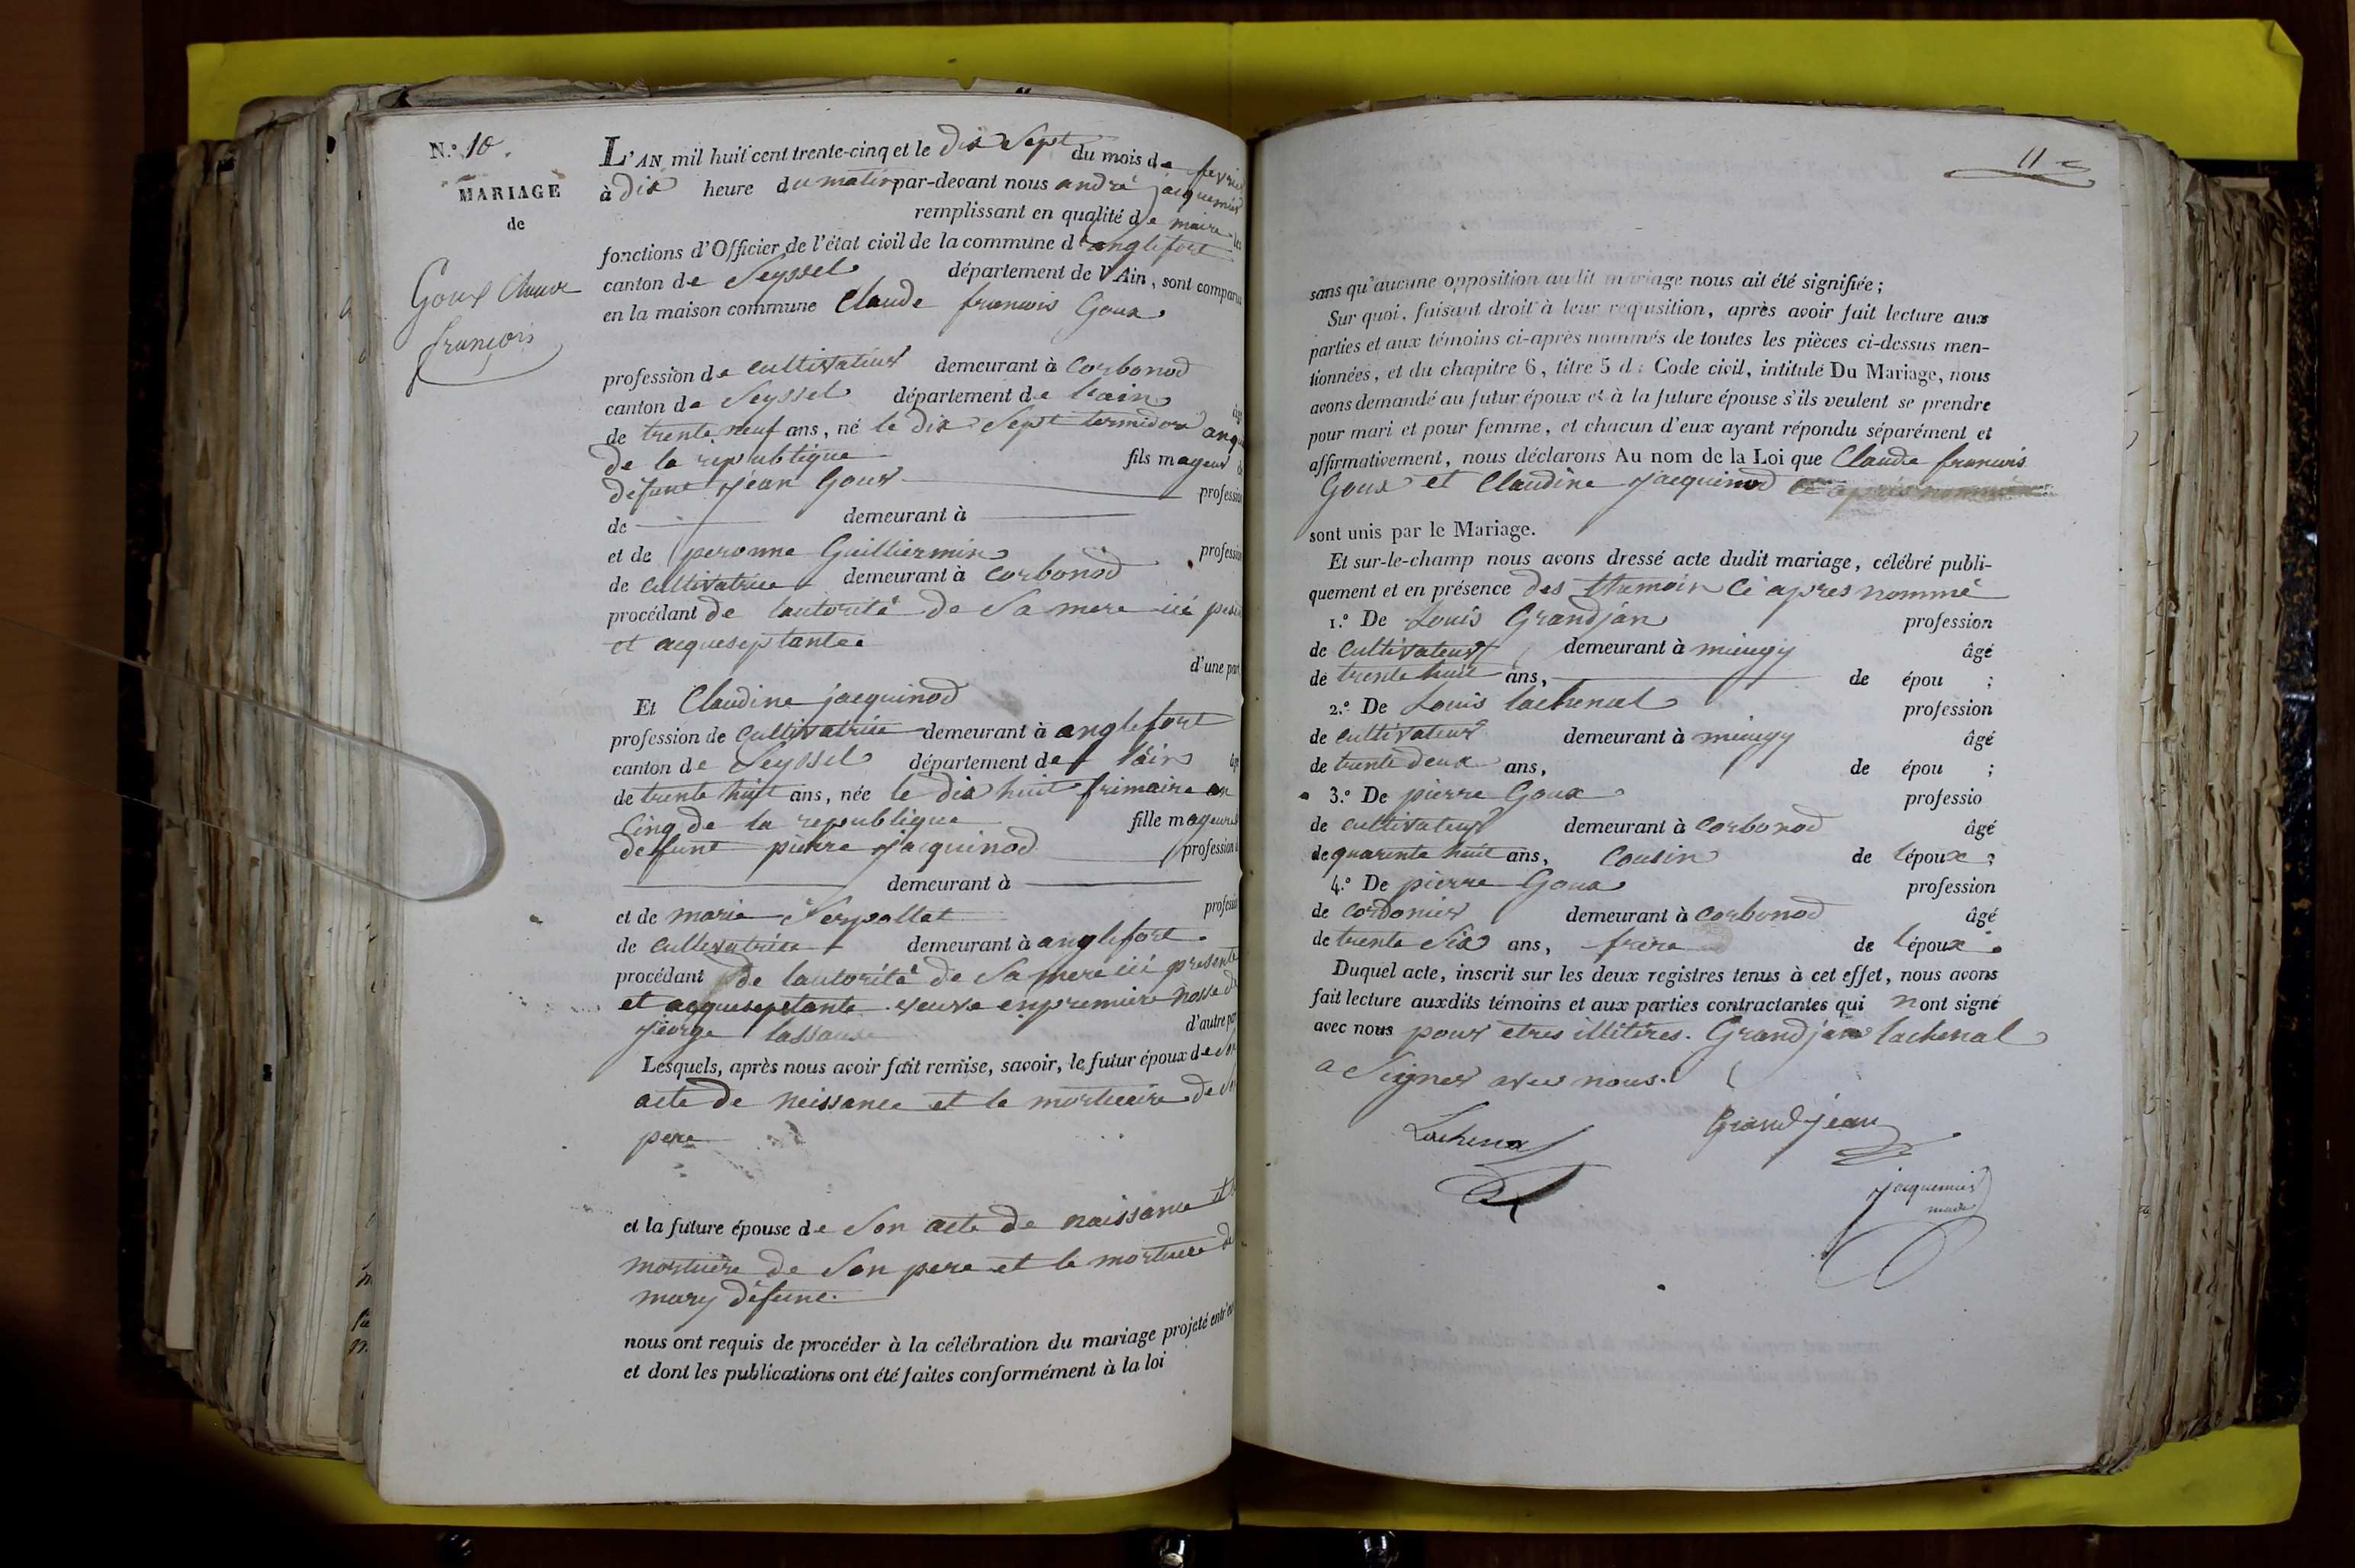 N.º 10.
MARIAGE
de
Goux Claude
françois
L'AN mil huit cent trente-cinq et le dix Sept du mois de fevrier
à dix heure du matin par-devant nous andré jacquemier
remplissant en qualité de maire les
fonctions d'Officier de l'état civil de la commune d'anglefort
canton de Seyssel département de l'Ain, sont comparus
en la maison commune Claude francois Goux
profession de cultivateur demeurant à Corbonod
canton de Seyssel département de l'ain âgé
de trente neuf ans, né le dix Sept termidor
de la republique fils mageur de
défunt Jean Goux profession
de demeurant à
et de peronne Guilliermin profession
de cultivatrice demeurant à Corbonod
procédant de lautorité de Sa mere icé
et acqueseptantee
d'une part
Et Claudine jacquinod
profession de Cultivatrice demeurant à anglefort
canton de Seyssel département de l'ain âgé
de trente huit ans, née le dix huit frimaire an
Cinq de la republique fille mageure
deffunt pierre Jacquinod profession
demeurant à
et de marie Serpollet profession
de Cultivatrice demeurant à anglefort
procédant de lautorité de Sa mere icé presente
et acqueseptante veuve en premiere nosse de
Jeorge lassause d'autre part
Lesquels, après nous avoir fait remise, savoir, le futur époux de Son
acte de neissance et le mortueaire de Son
pere
et la future épouse de Son acte de naissance et le
mortuere de Son pere et le mortuere du
mary défunt.
nous ont requis de procéder à la célébration du mariage projeté entr'eux
et dont les publications ont été faites conformément à la loi
11
sans qu'aucune opposition audit mariage nous ait été signifiée;
Sur quoi, faisant droit à leur requisition, après avoir fait lecture aux
parties et aux témoins ci-après nommés de toutes les pièces ci-dessus men-
tionnées, et du chapitre 6, titre 5 du Code civil, intitulé Du Mariage, nous
avons demandé au futur époux et à la future épouse s'ils veulent se prendre
pour mari et pour femme, et chacun d'eux ayant répondu séparément et
affirmativement, nous déclarons Au nom de la Loi que Claude francois
Goux et Claudine Jacquinod
sont unis par le Mariage.
Et sur-le-champ nous avons dressé acte dudit mariage, célébré publi-
quement et en présence des ttemoin Cé apres nommé
1.º De Louis Grandjan profession
de Cultivateur demeurant à mieugy âgé
de trente huit ans, de épou ;
2.º De Louis lachenal profession
de cultivateur demeurant à mieugy âgé
de trente deux ans, de épou ;
3.º De pierre Goux professio
de cultivateur demeurant à Corbonod âgé
de quarente huit ans, Cousin de l'époux ;
4.º De pierre Goux profession
de Cordonier demeurant à Corbonod âgé
de trente Six ans, frere de l'époux .
Duquel acte, inscrit sur les deux registres tenus à cet effet, nous avons
fait lecture auxdits témoins et aux parties contractantes qui n'ont signé
avec nous pour etres illitéres. Grandjan lachenal
a Signer avec nous.
Lachenal Grand Jean
Jacquemier
maire